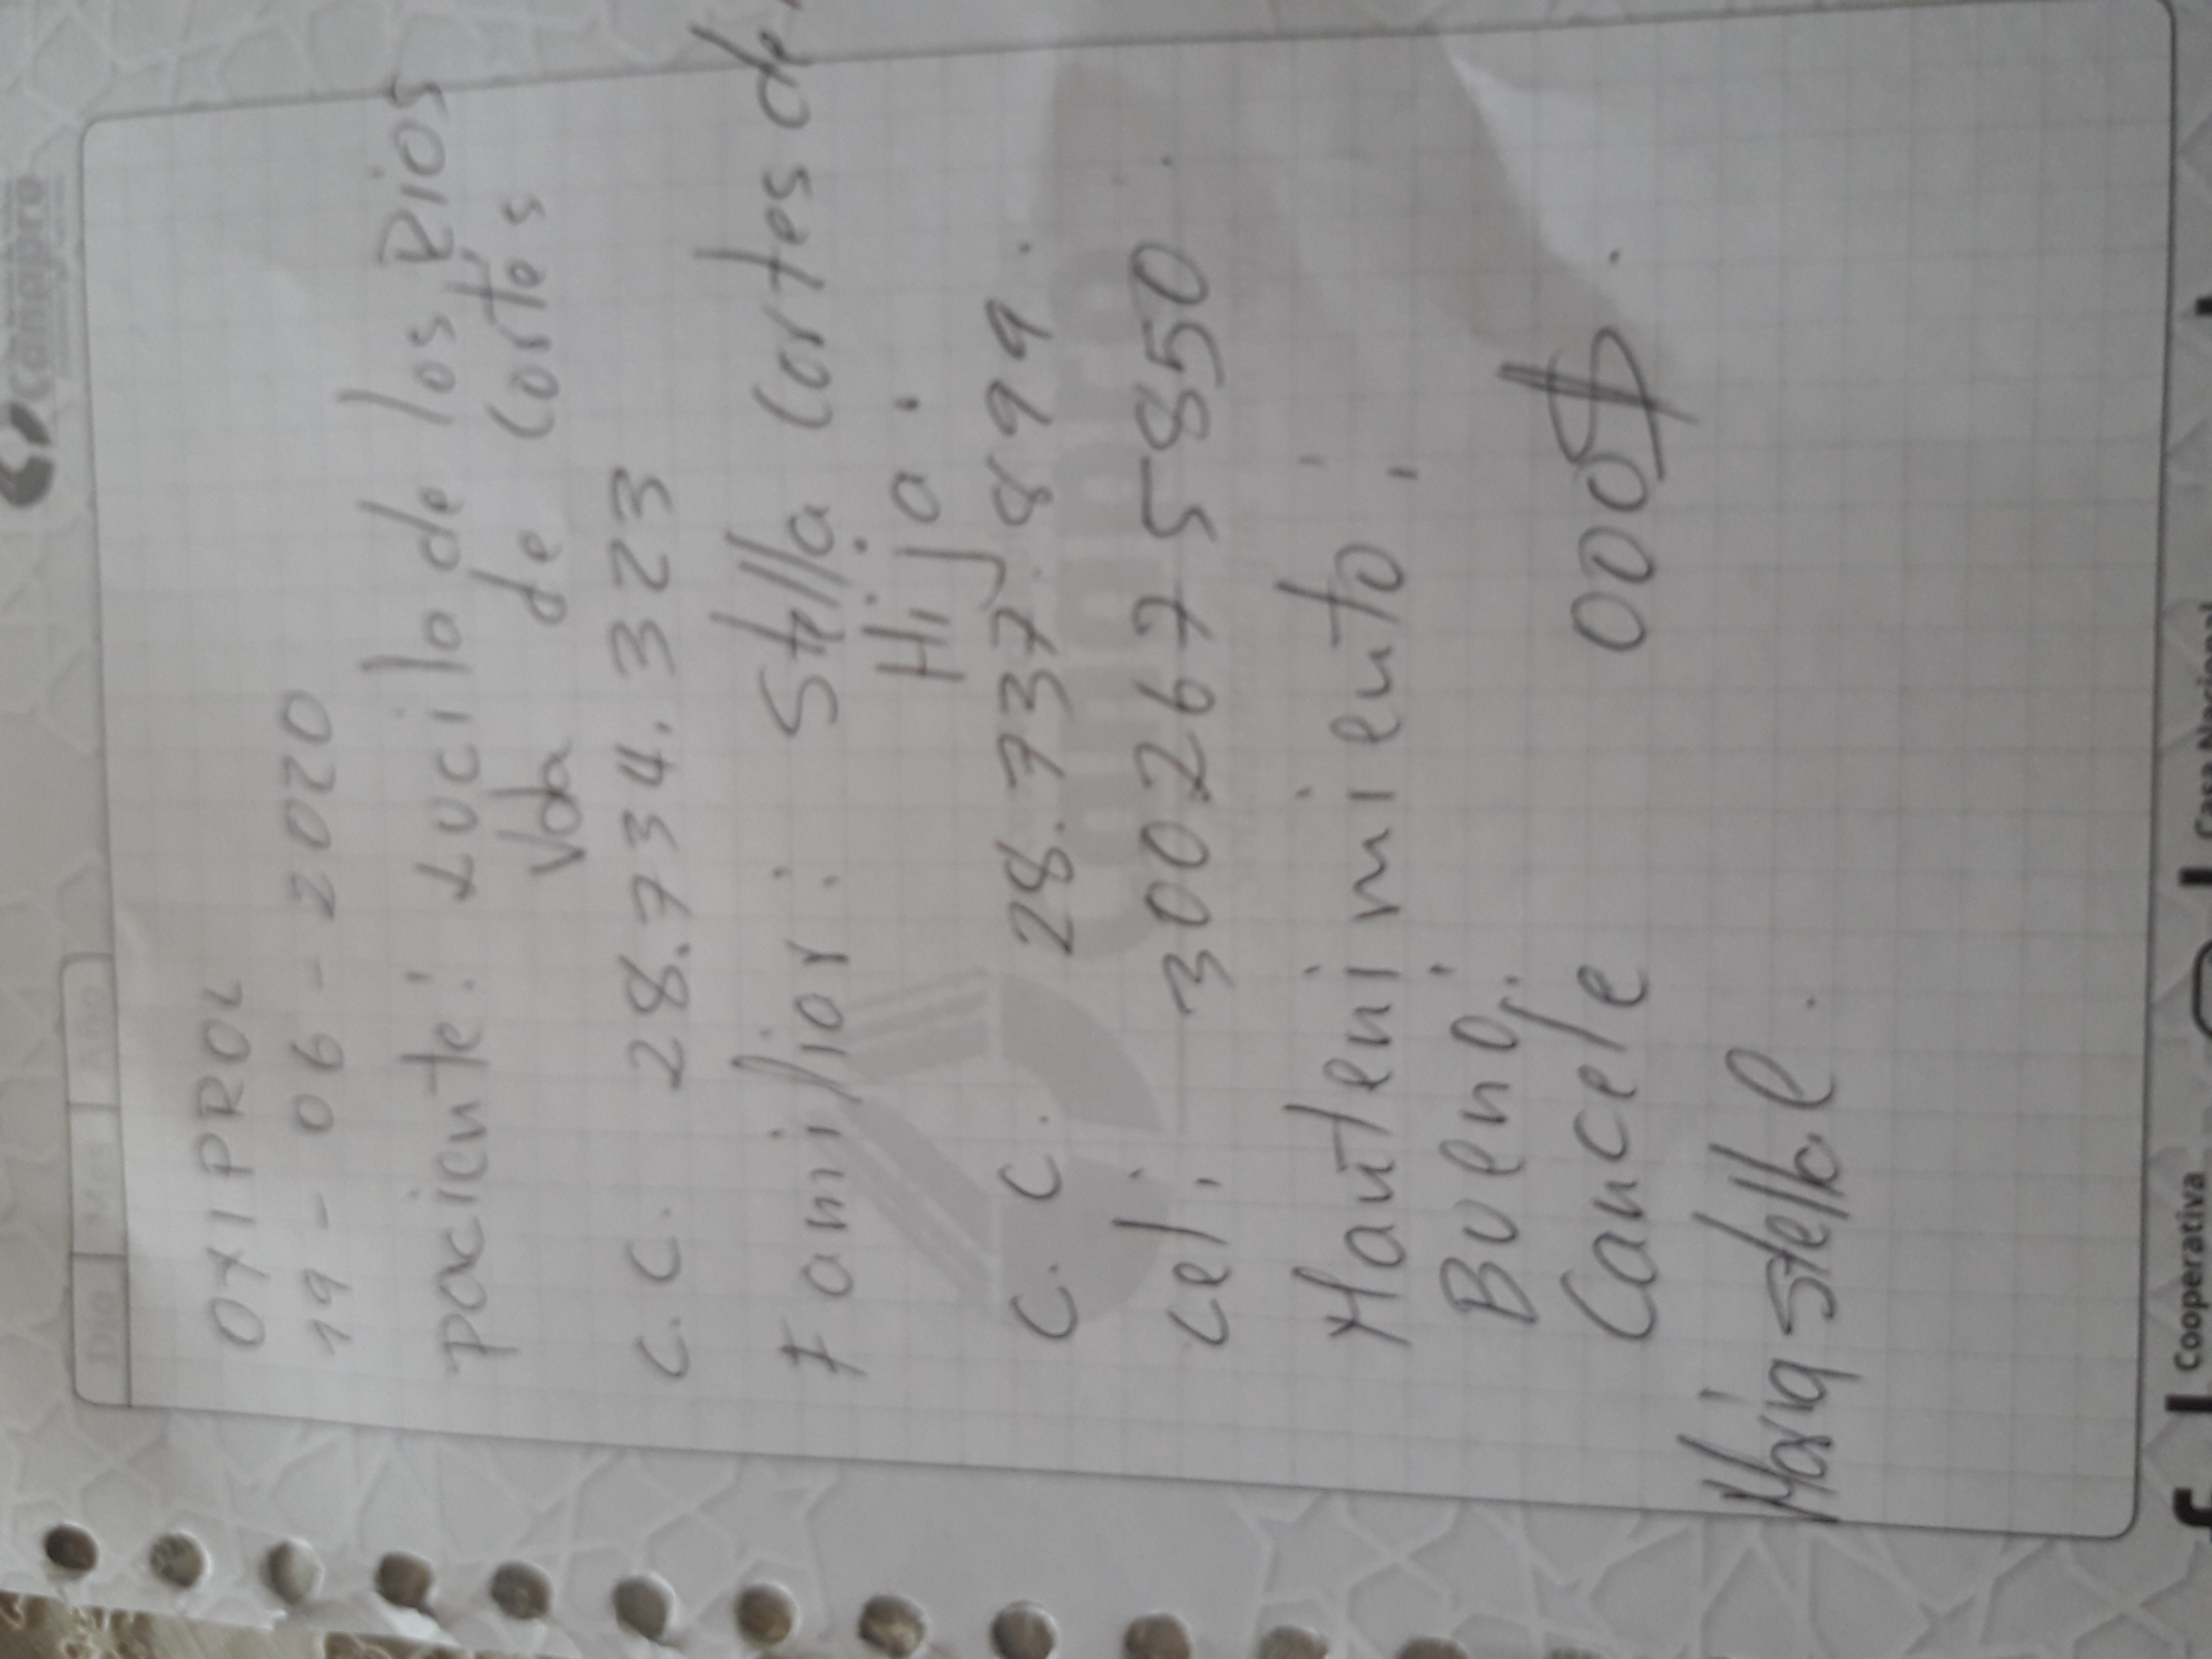 Canapro
Día Mes Año
OXIPROL
19 - 06 - 2020
paciente: Lucila de los Rios
Vda de Cortés
C.C. 28.734.323
Familiar: Stella Cortes de
Hija.
C. C. 28.737.899.
cel: 3002675850
Mantenimiento:
Bueno;
Cancele 000$
Cooperativa
Casa Nacional